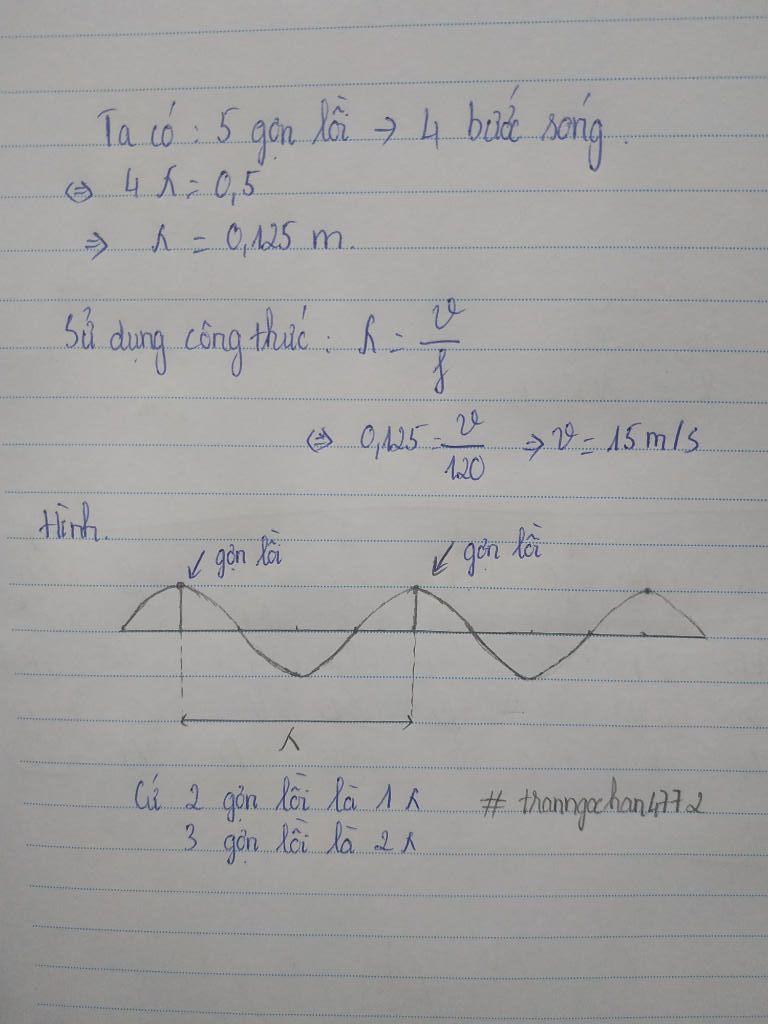 Ta có : 5 gợn lồi → 4 bước sóng.
⇔ 4 λ = 0,5
⇒ λ = 0,125 m.
Sử dụng công thức : λ = v/f
⇔ 0,125 = v/120 ⇒ v = 15 m/s
Hình.
↙ gợn lồi ↙ gợn lồi
λ
Cứ 2 gợn lồi là 1 λ # tranngochan4772
3 gợn lồi là 2 λ